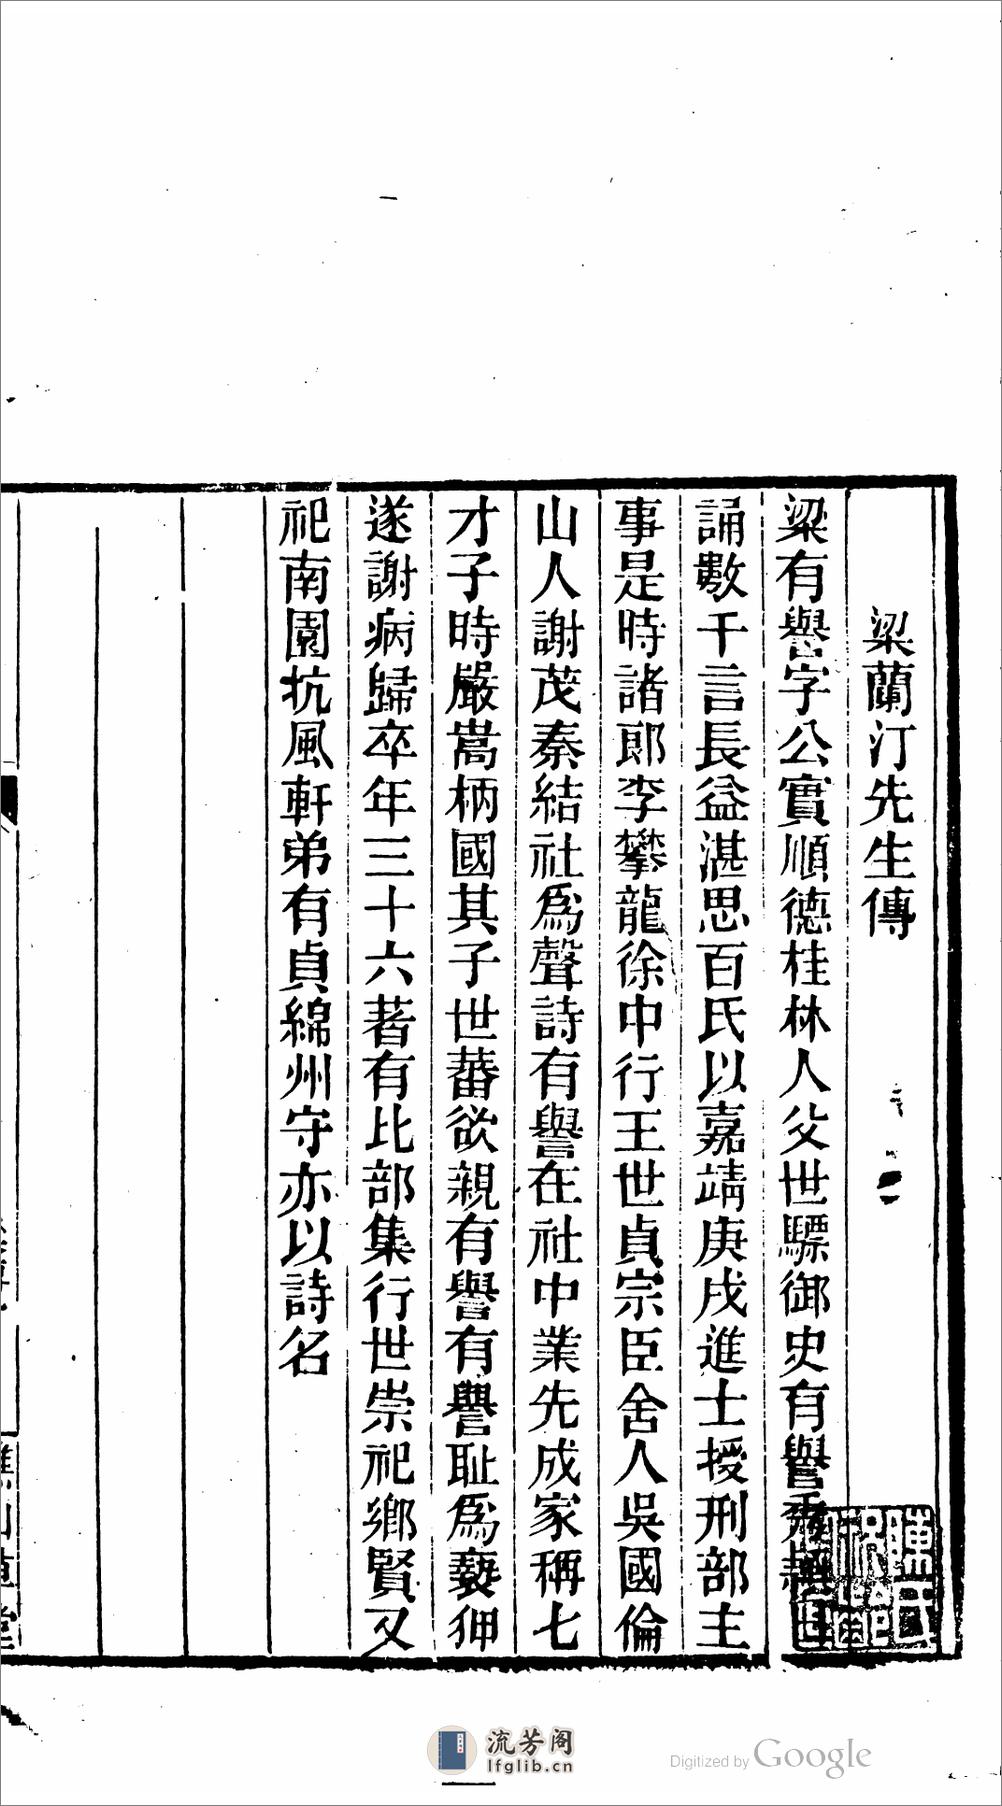 梁蘭汀先生傳
梁有譽字公實順德桂林人父世驃御史有譽秀穎日
誦數千言長益湛思百氏以嘉靖庚戌進士授刑部主
事是時諸郎李攀龍徐中行王世貞宗臣舍人吳國倫
山人謝茂秦結社爲聲詩有譽在社中業先成家稱七
才子時嚴嵩柄國其子世蕃欲親有譽有譽耻爲褻狎
遂謝病歸卒年三十六著有比部集行世崇祀鄉賢又
祀南園抗風軒弟有貞綿州守亦以詩名
流芳阁
lfglib.cn
Digitized by Google